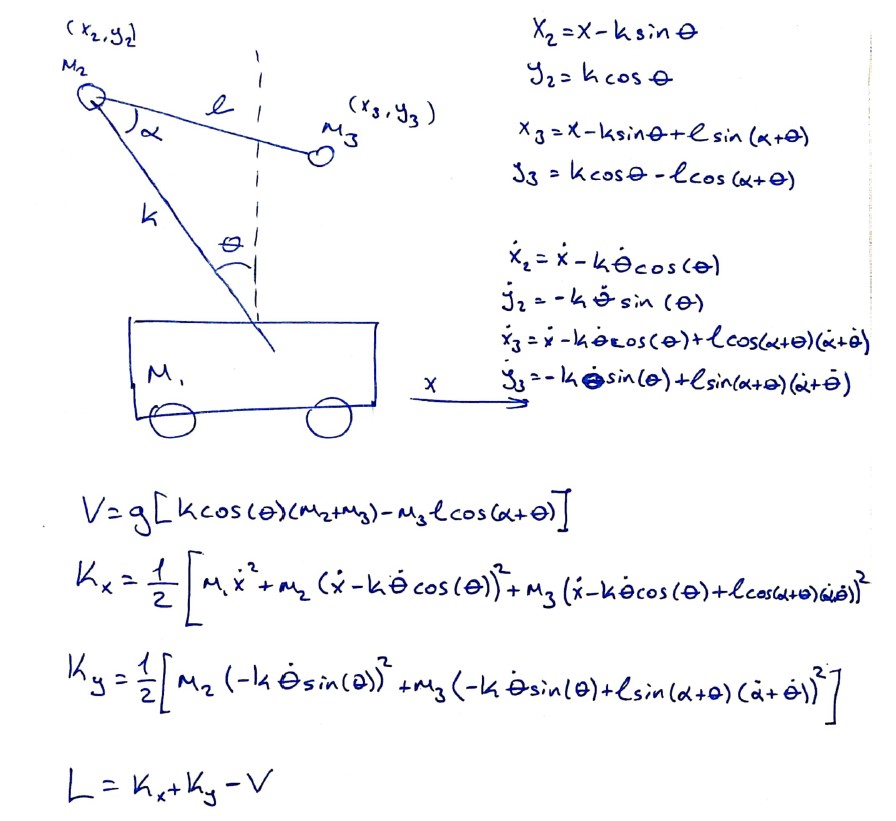 (x₂,y₂)
M₂
α
l
(x₃,y₃)
M₃
k
θ
M₁
x
x₂=x-k sin θ
y₂=k cos θ
x₃=x-ksinθ+l sin(α+θ)
y₃=kcosθ-lcos(α+θ)
ẋ₂=ẋ-kθ̇cos(θ)
ẏ₂=-kθ̇ sin(θ)
ẋ₃=ẋ-kθ̇cos(θ)+lcos(α+θ)(α̇+θ̇)
ẏ₃=-kθ̇sin(θ)+lsin(α+θ)(α̇+θ̇)
V=g[kcos(θ)(M₂+M₃)-M₃lcos(α+θ)]
Kx=1/2[M₁ẋ²+M₂(ẋ-kθ̇cos(θ))²+M₃(ẋ-kθ̇cos(θ)+lcos(α+θ)(α̇+θ̇))²
Ky=1/2[M₂(-kθ̇sin(θ))²+M₃(-kθ̇sin(θ)+lsin(α+θ)(α̇+θ̇))²]
L=Kx+Ky-V